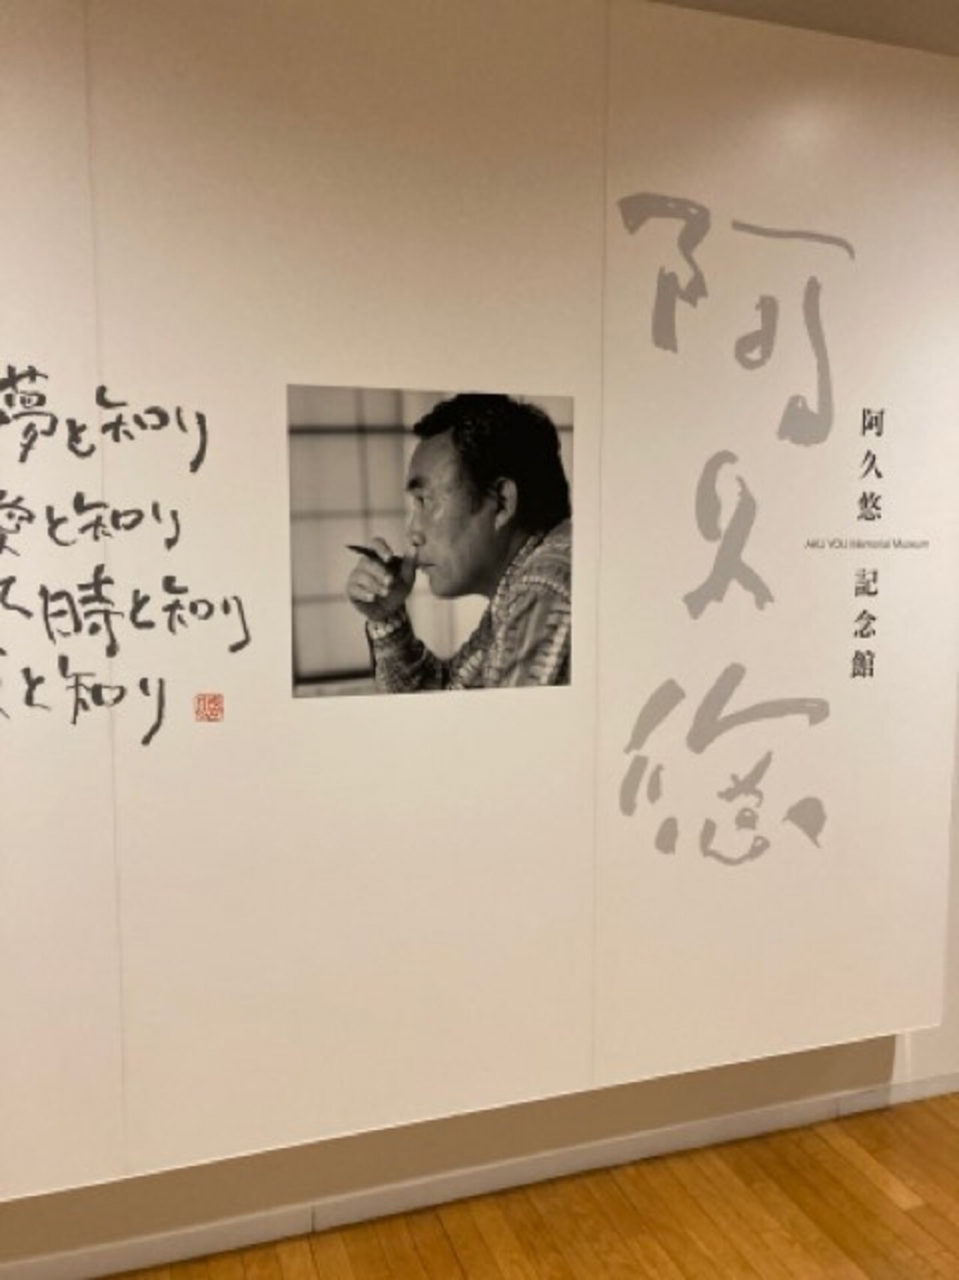 阿久悠
阿久悠
AKU YOU Memorial Museum
記念館
夢と知り
愛と知り
て時と知り
と知り
悠